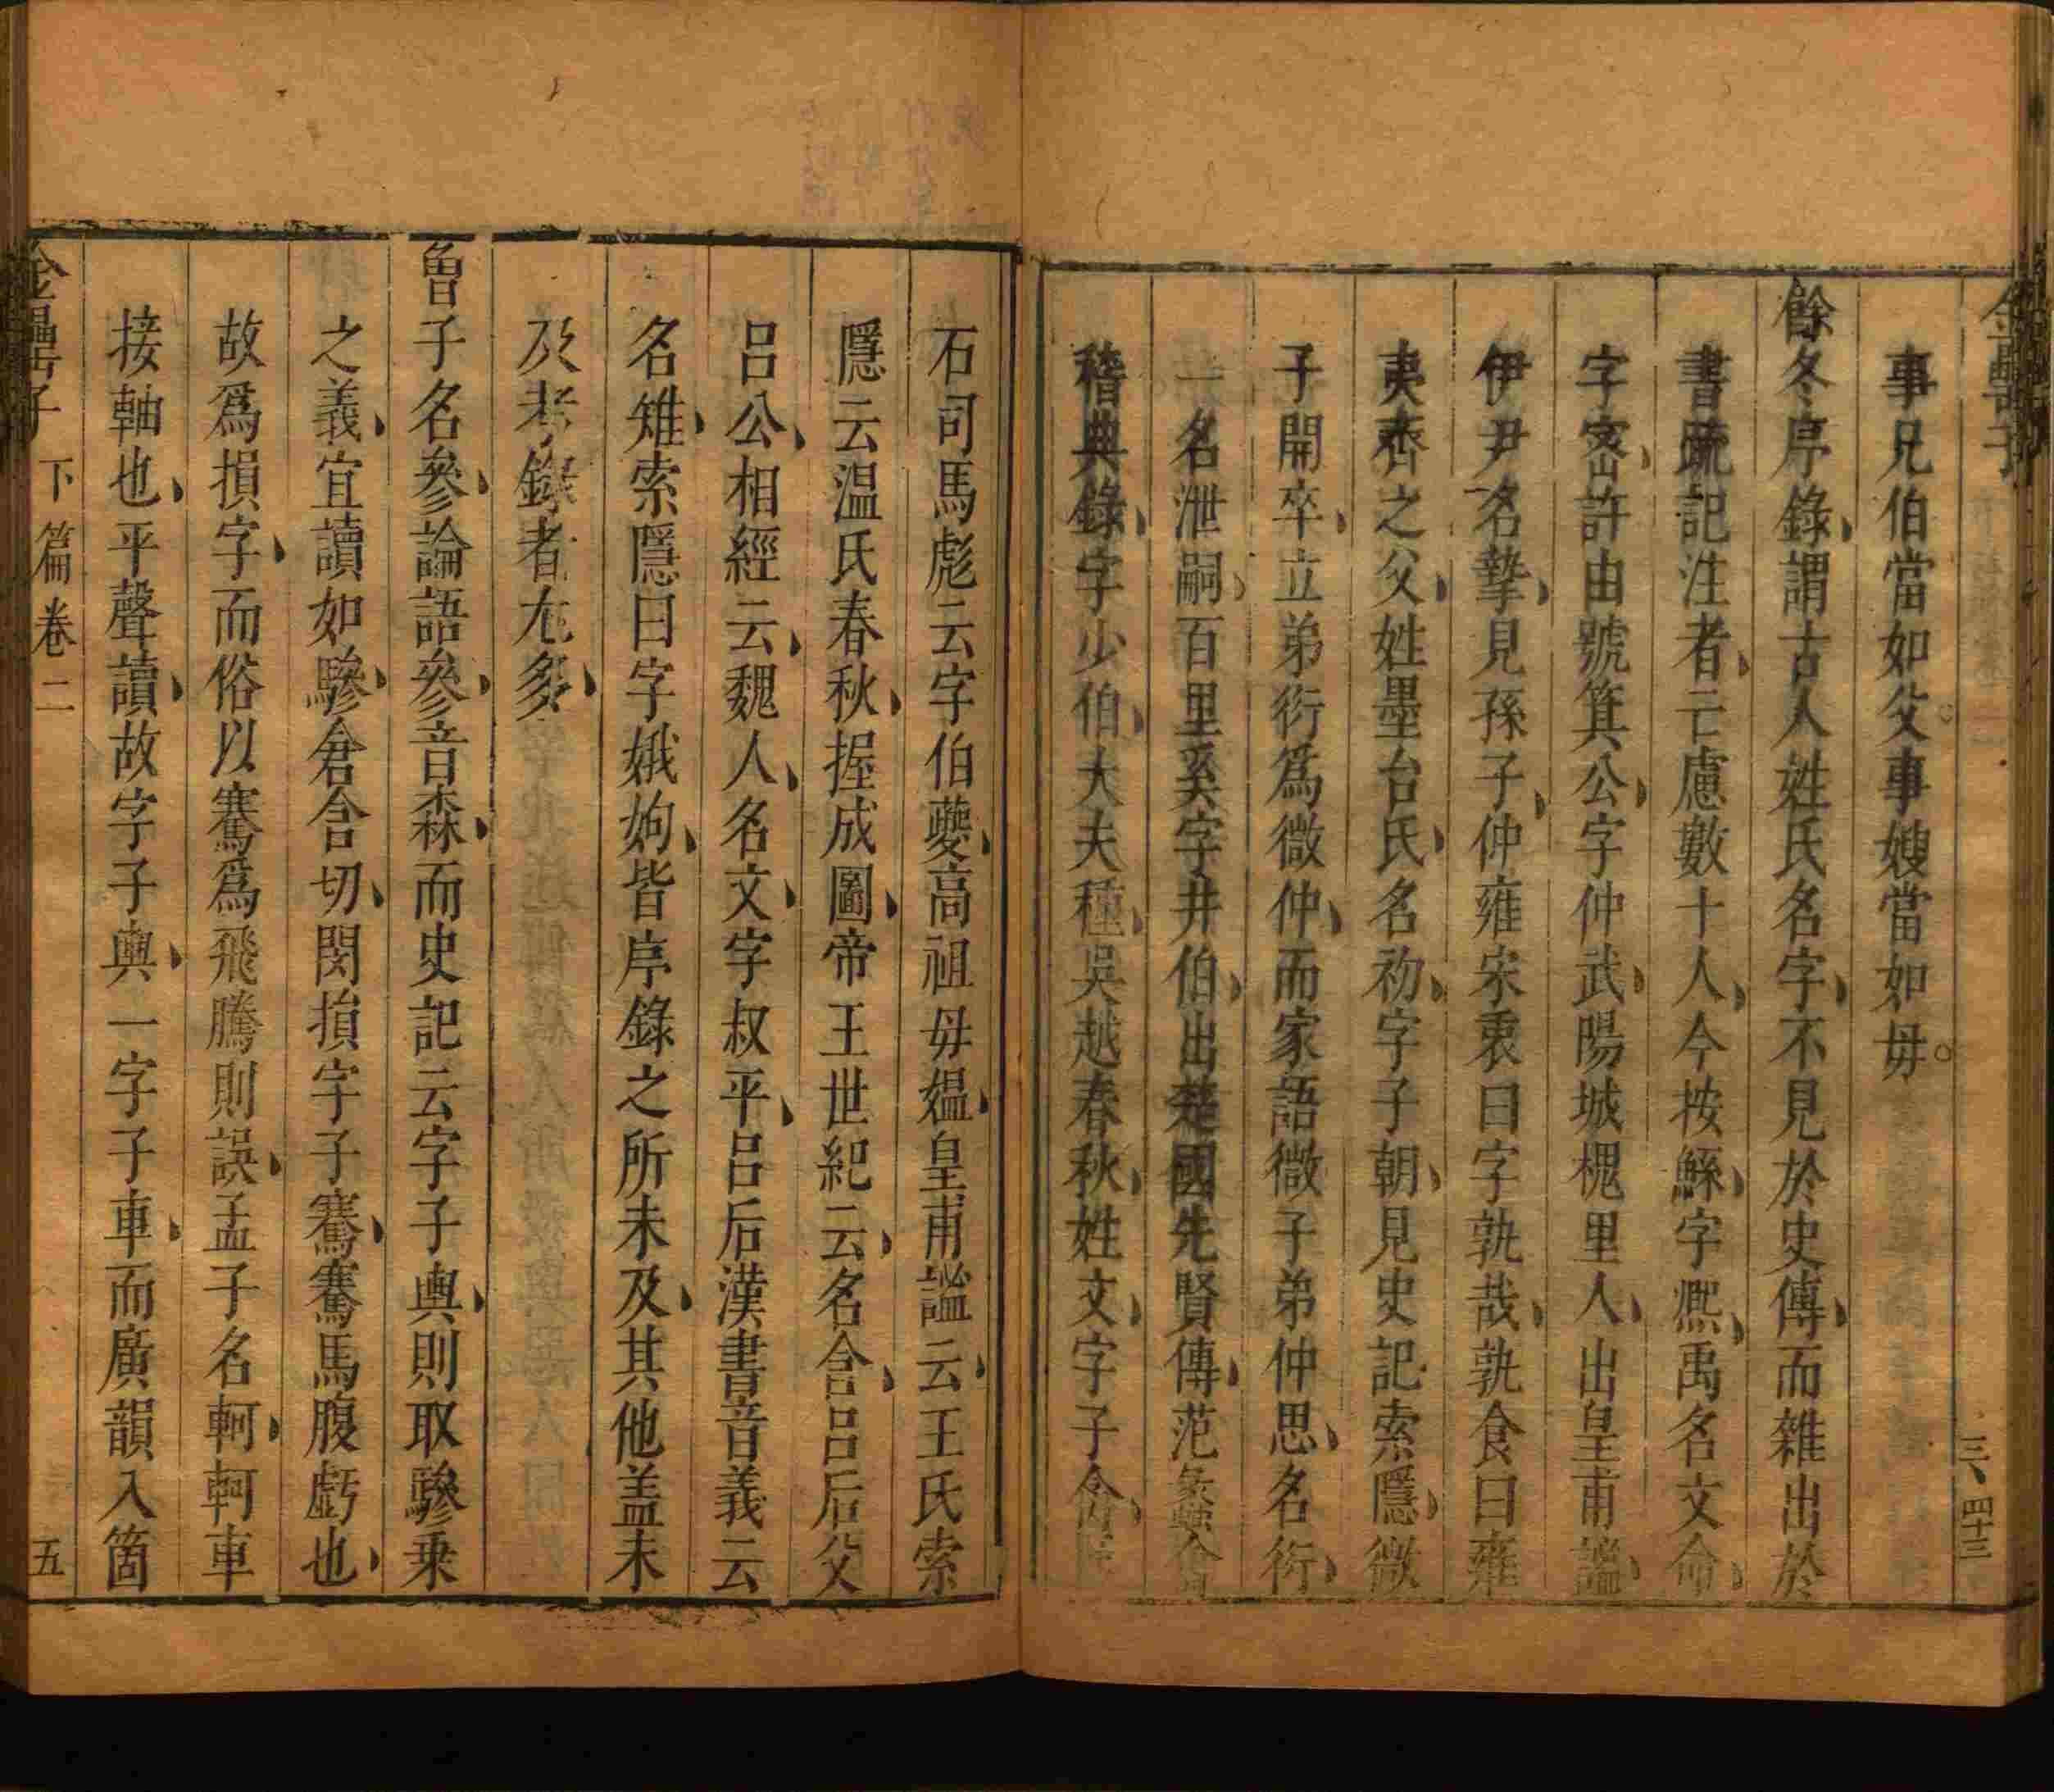 金罍子
三、四十三
事兄伯當如父事嫂當如母
餘冬序錄謂古人姓氏名字不見於史傳而雜出於
書疏記注者亡慮數十人今按鯀字熙禹名文命
字密許由號箕公字仲武陽城槐里人出皇甫謐
伊尹名摯見孫子仲雍宋衷曰字孰哉孰食曰雍
夷齊之父姓墨台氏名初字子朝見史記索隱微
子開卒立弟衍爲微仲而家語微子弟仲思名衍
一名泄嗣百里奚字井伯出楚國先賢傳范蠡會
稽典錄字少伯大夫種吳越春秋姓文字子禽
石司馬彪云字伯夔高祖母媼皇甫謐云王氏索
隱云温氏春秋握成圖帝王世紀云名含呂后父
呂公相經云魏人名文字叔平呂后漢書音義云
名雉索隱曰字娥姁皆序錄之所未及其他盖未
及考錄者尢多
曾子名參論語參音森而史記云字子輿則取驂乗
之義宜讀如驂倉含切閔損字子騫騫馬腹虧也
故爲損字而俗以騫爲飛騰則誤孟子名軻軻車
接軸也平聲讀故字子輿一字子車而廣韻入箇
金罍子 下篇卷二 五